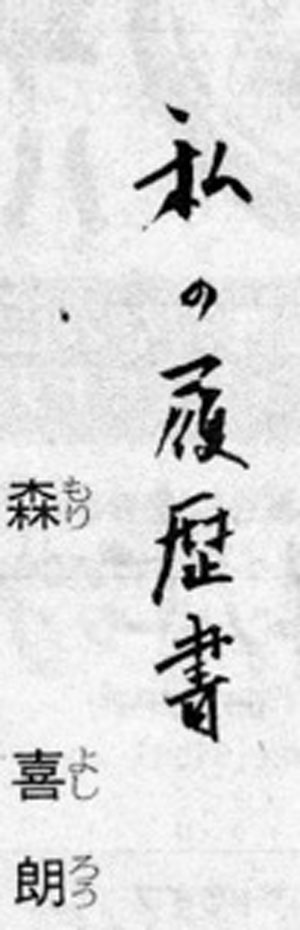 私の履歴書
森喜朗
もりよしろう